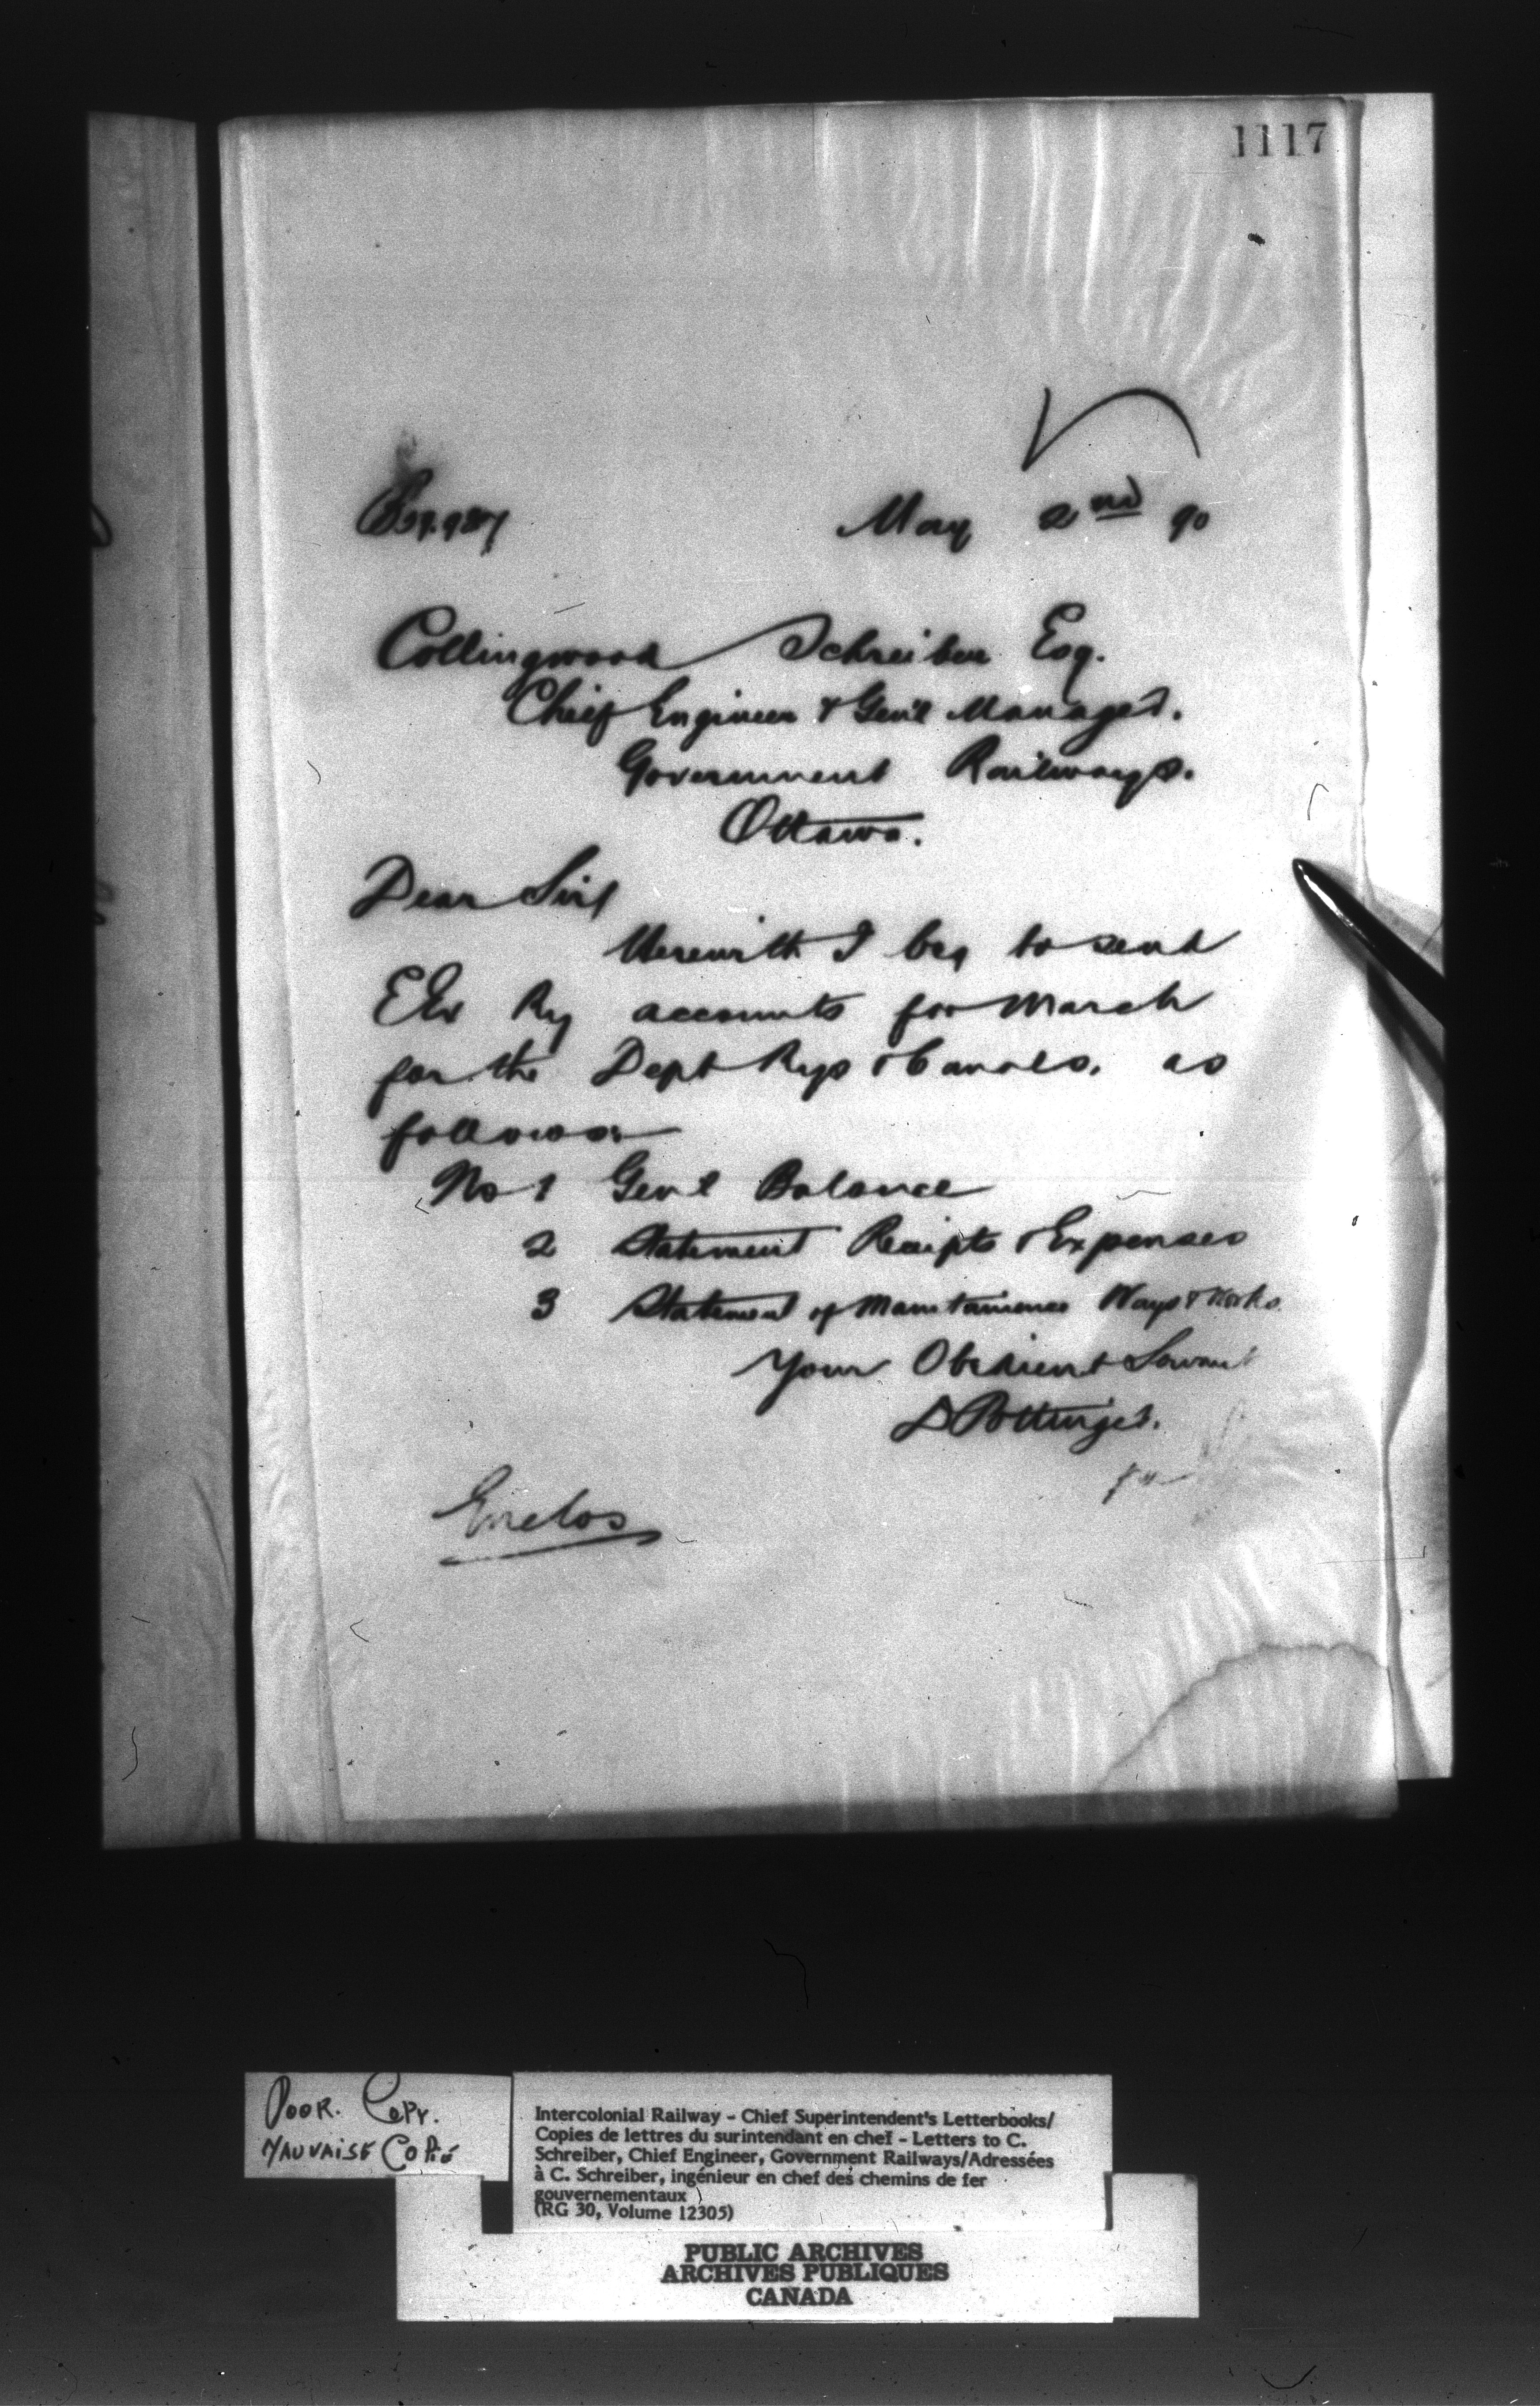 1117
May 2nd 90
Collingwood Schreiber Esq.
Chief Engineer & Gen'l Manager.
Government Railways.
Ottawa.
Dear Sir,
Herewith I beg to send
Ry accounts for March
for the Dept Rys & Canals, as
follows:
No 1 Genl Balance
2 Statement Receipts & Expenses
3 Statement of Maintainence Ways & Works
Your Obedient Servant
D Pottinger.
Enclos
POOR. COPY.
MAUVAISE COPIE
Intercolonial Railway - Chief Superintendent's Letterbooks/
Copies de lettres du surintendant en chef - Letters to C.
Schreiber, Chief Engineer, Government Railways/Adressées
à C. Schreiber, ingénieur en chef des chemins de fer
gouvernementaux
(RG 30, Volume 12305)
PUBLIC ARCHIVES
ARCHIVES PUBLIQUES
CANADA